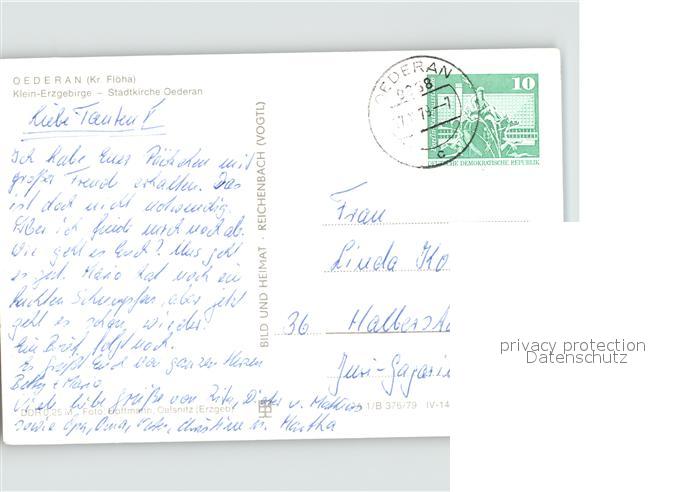 OEDERAN (Kr. Flöha)
Klein-Erzgebirge – Stadtkirche Oederan
Liebe Tanten!
Ich habe Euer Päckchen mit
großer Freud erhalten. Das
ist doch nicht notwendig.
Aber ich finde mich noch ab.
Wie geht es Euch? Uns geht
es gut. Mario hat noch ein
leichten Schnupfen, aber jetzt
geht es schon wieder.
Ein Brief folgt noch.
Es grüßt Euch von ganzen Herzen
Betty + Mario
Viele liebe Grüße von Rita, Dieter u. Mathias
sowie Opa, Oma, Peter, Christine u. Martha
DDR 0,25 M Foto: Hoffmann, Oelsnitz (Erzgeb)
BILD UND HEIMAT · REICHENBACH (VOGTL)
1/B 376/79 IV-14
OEDERAN
79-7
c
10
DEUTSCHE DEMOKRATISCHE REPUBLIK
Frau
Linda Ko
36 Halbersta
Juri-Gagarin
privacy protection
Datenschutz